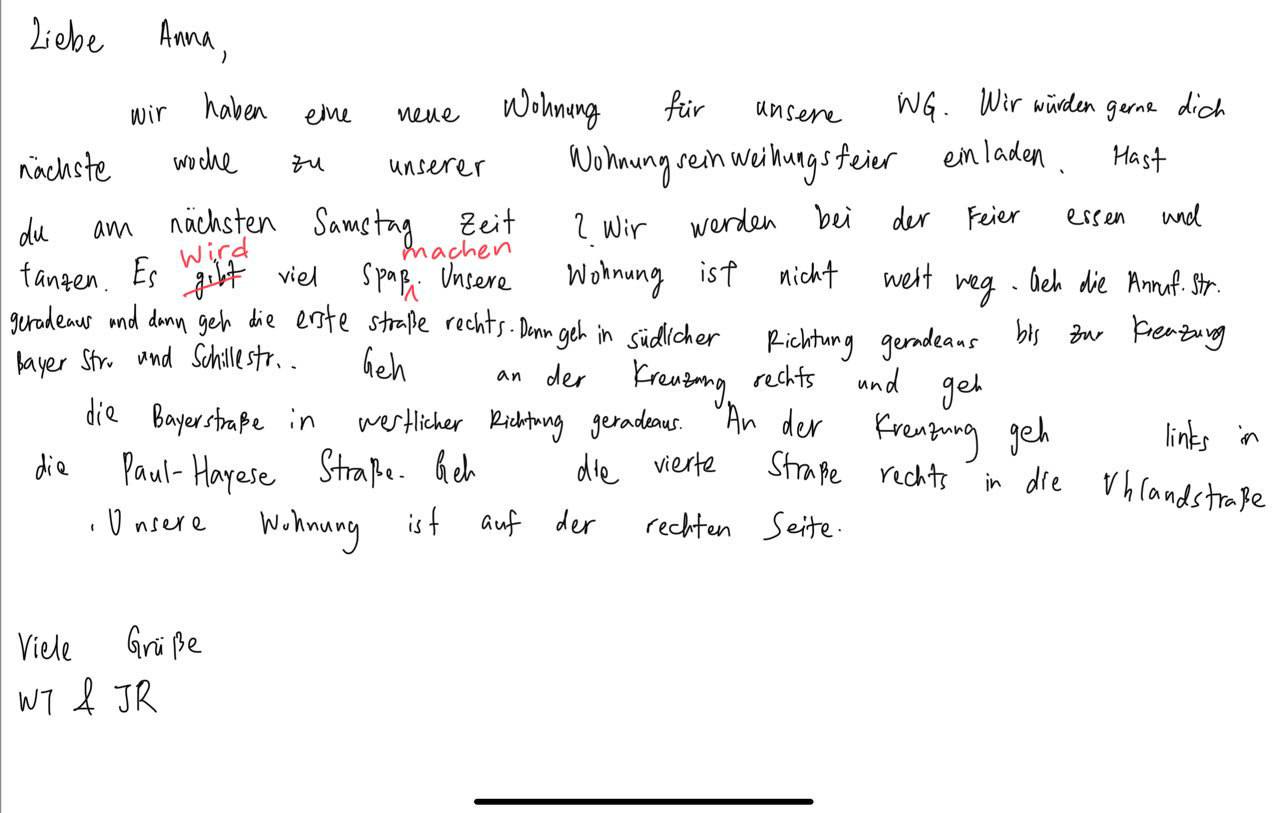 Liebe Anna,
wir haben eine neue Wohnung für unsere WG. Wir würden gerne dich
nächste woche zu unserer Wohnungseinweihungsfeier einladen. Hast
du am nächsten Samstag Zeit ? Wir werden bei der Feier essen und
wird machen
tanzen. Es gibt viel Spaß. Unsere Wohnung ist nicht weit weg. Geh die Annuf. Str.
geradeaus und dann geh die erste straße rechts. Dann geh in südlicher Richtung geradeaus bis zur Kreuzung
Bayer Str. und Schillestr.. Geh an der Kreuzung rechts und geh
die Bayerstraße in westlicher Richtung geradeaus. An der Kreuzung geh links in
die Paul-Hayese Straße. Geh die vierte Straße rechts in die Uhlandstraße
. Unsere Wohnung ist auf der rechten Seite.
Viele Grüße
WT & JR